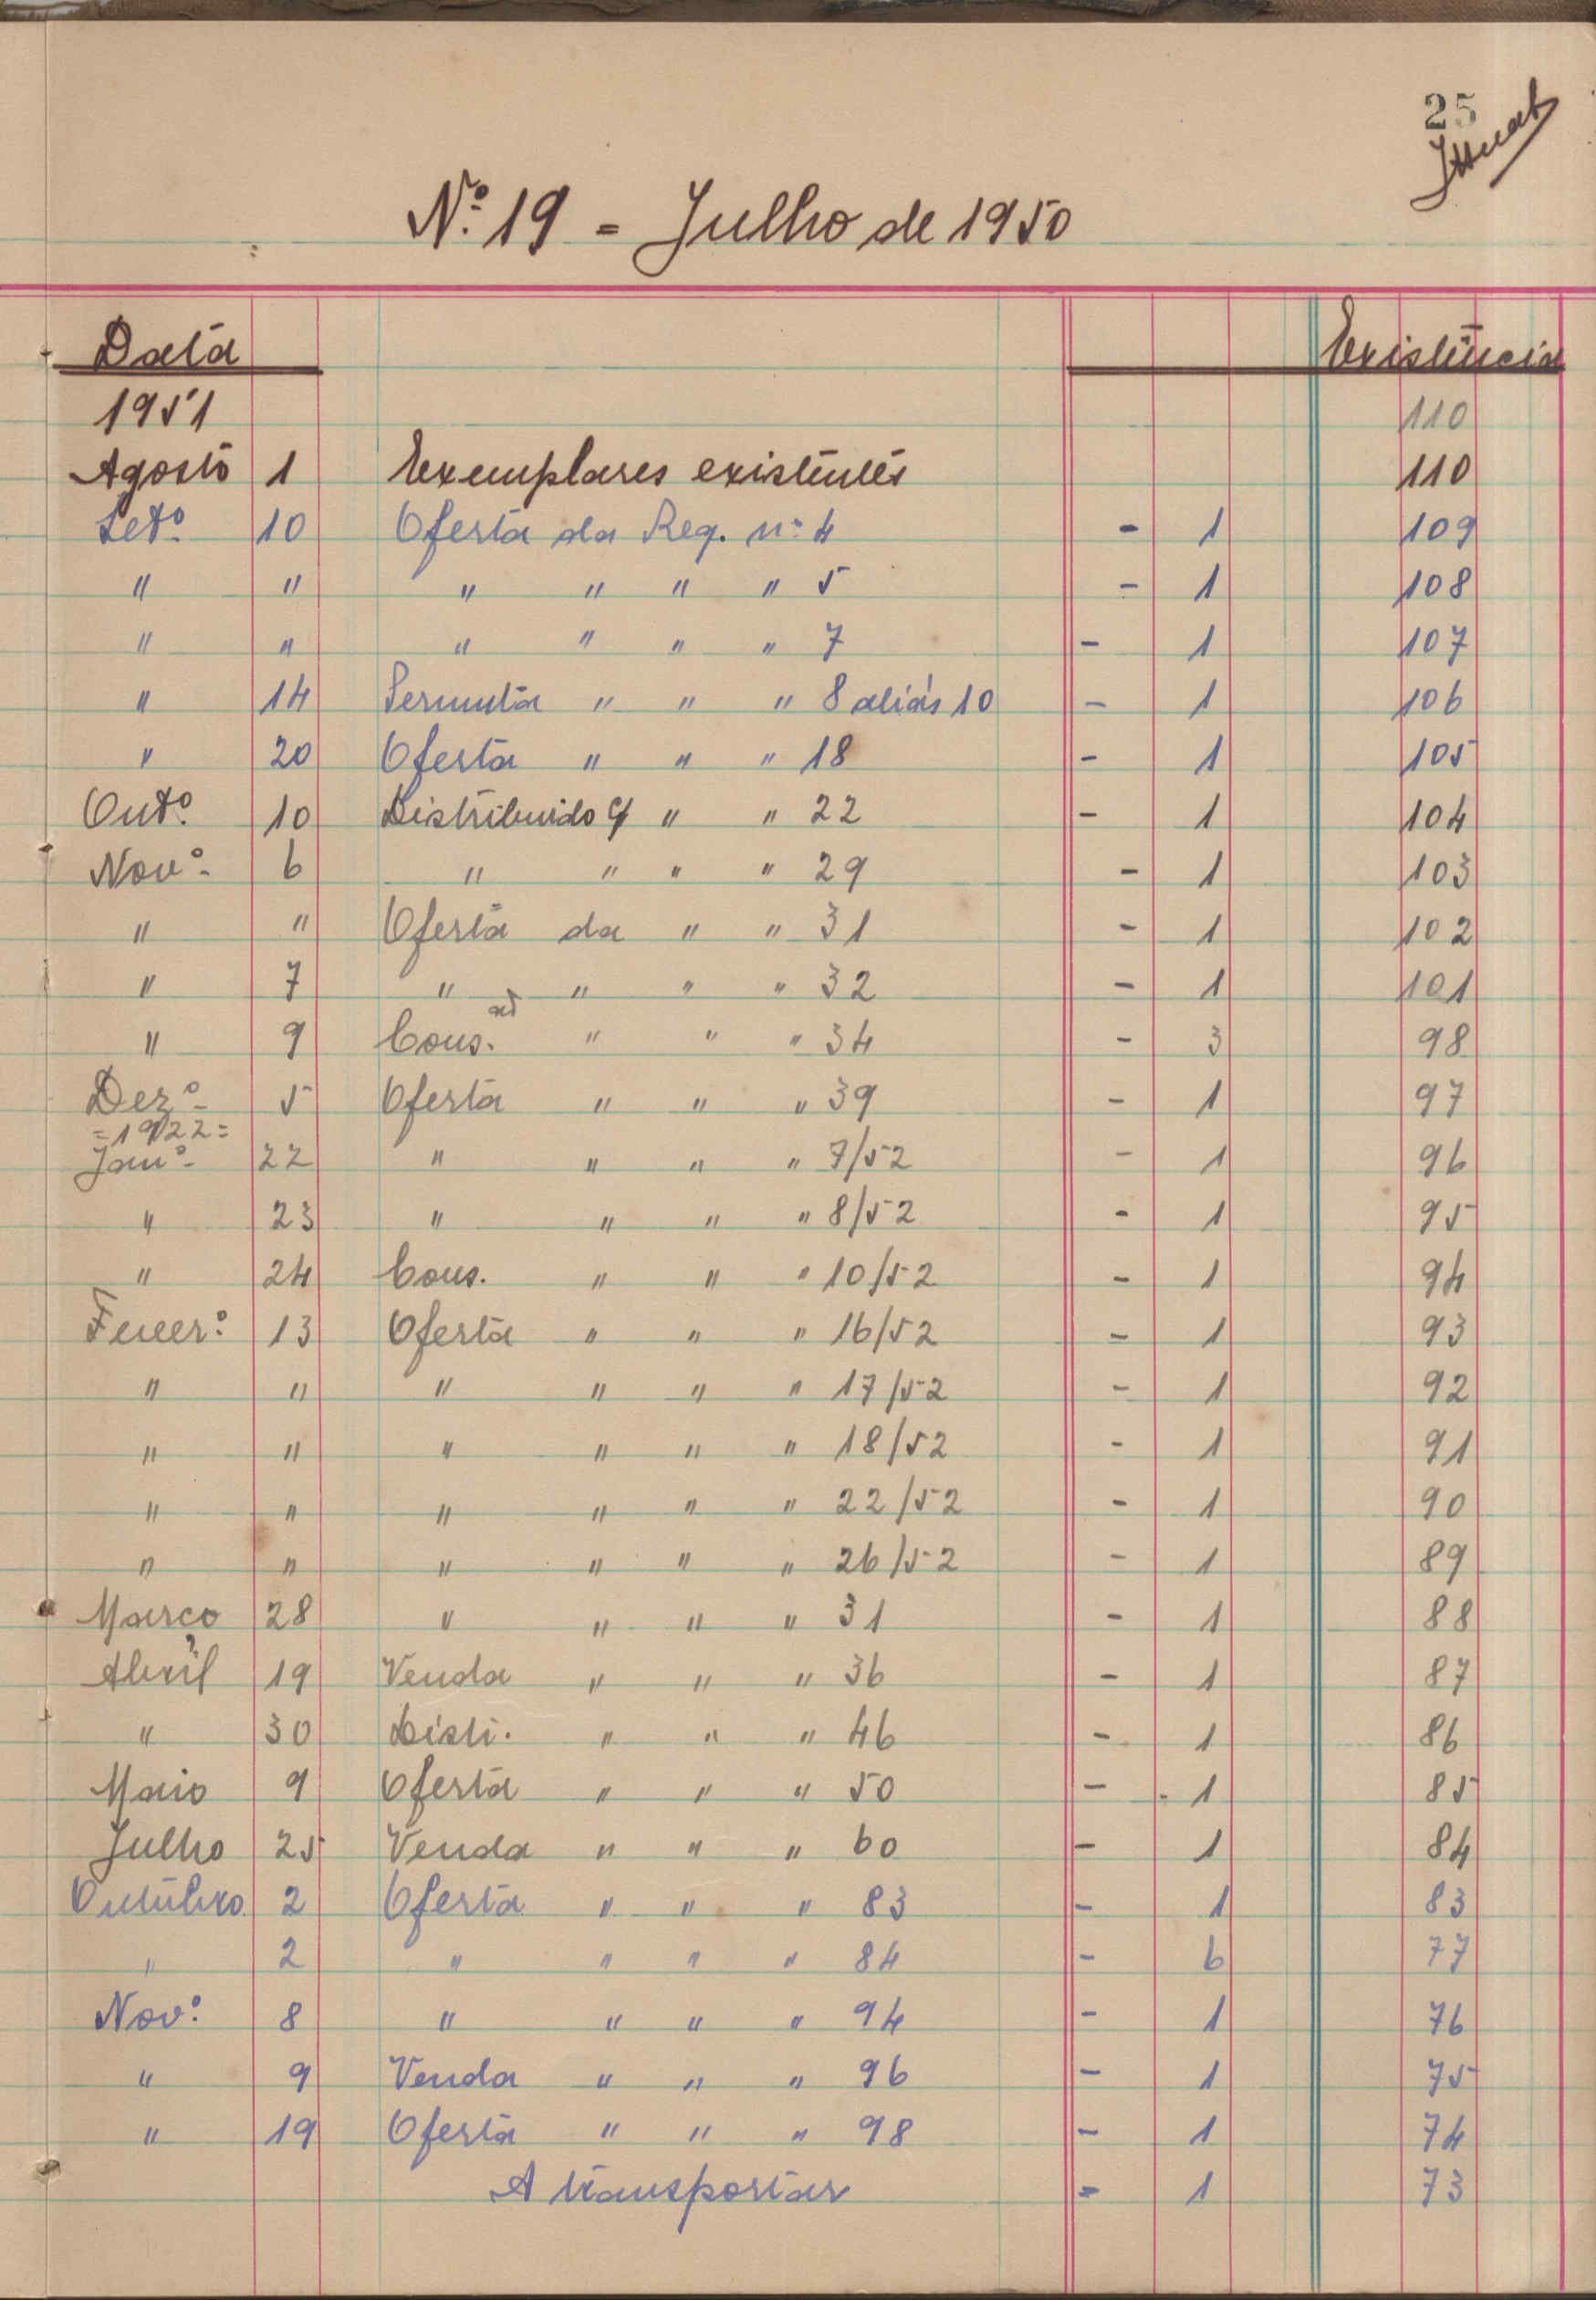 25
Nº 19 = Julho de 1950
Data Existência
1951 110
Agosto 1 Exemplares existentes 110
Setº 10 Oferta da Req. nº 4 - 1 109
" " " " " " 5 - 1 108
" " " " " " 7 - 1 107
" 14 Permuta " " " 8 aliás 10 - 1 106
" 20 Oferta " " " 18 - 1 105
Outº 10 Distribuido c/ " " 22 - 1 104
Novº 6 " " " " 29 - 1 103
" " Oferta da " " 31 - 1 102
" 7 " " " " 32 - 1 101
" 9 Cons. " " " 34 - 3 98
Dezº 5 Oferta " " " 39 - 1 97
=1922=
Janº 22 " " " " 7/52 - 1 96
" 23 " " " " 8/52 - 1 95
" 24 Cons. " " " 10/52 - 1 94
Feverº 13 Oferta " " " 16/52 - 1 93
" " " " " " 17/52 - 1 92
" " " " " " 18/52 - 1 91
" " " " " " 22/52 - 1 90
" " " " " " 26/52 - 1 89
Março 28 " " " " 31 - 1 88
Abril 19 Venda " " " 36 - 1 87
" 30 Distr. " " " 46 - 1 86
Maio 9 Oferta " " " 50 - 1 85
Julho 25 Venda " " " 60 - 1 84
Outubro 2 Oferta " " " 83 - 1 83
" 2 " " " " 84 - 6 77
Novº 8 " " " " 94 - 1 76
" 9 Venda " " " 96 - 1 75
" 19 Oferta " " " 98 - 1 74
A transportar - 1 73